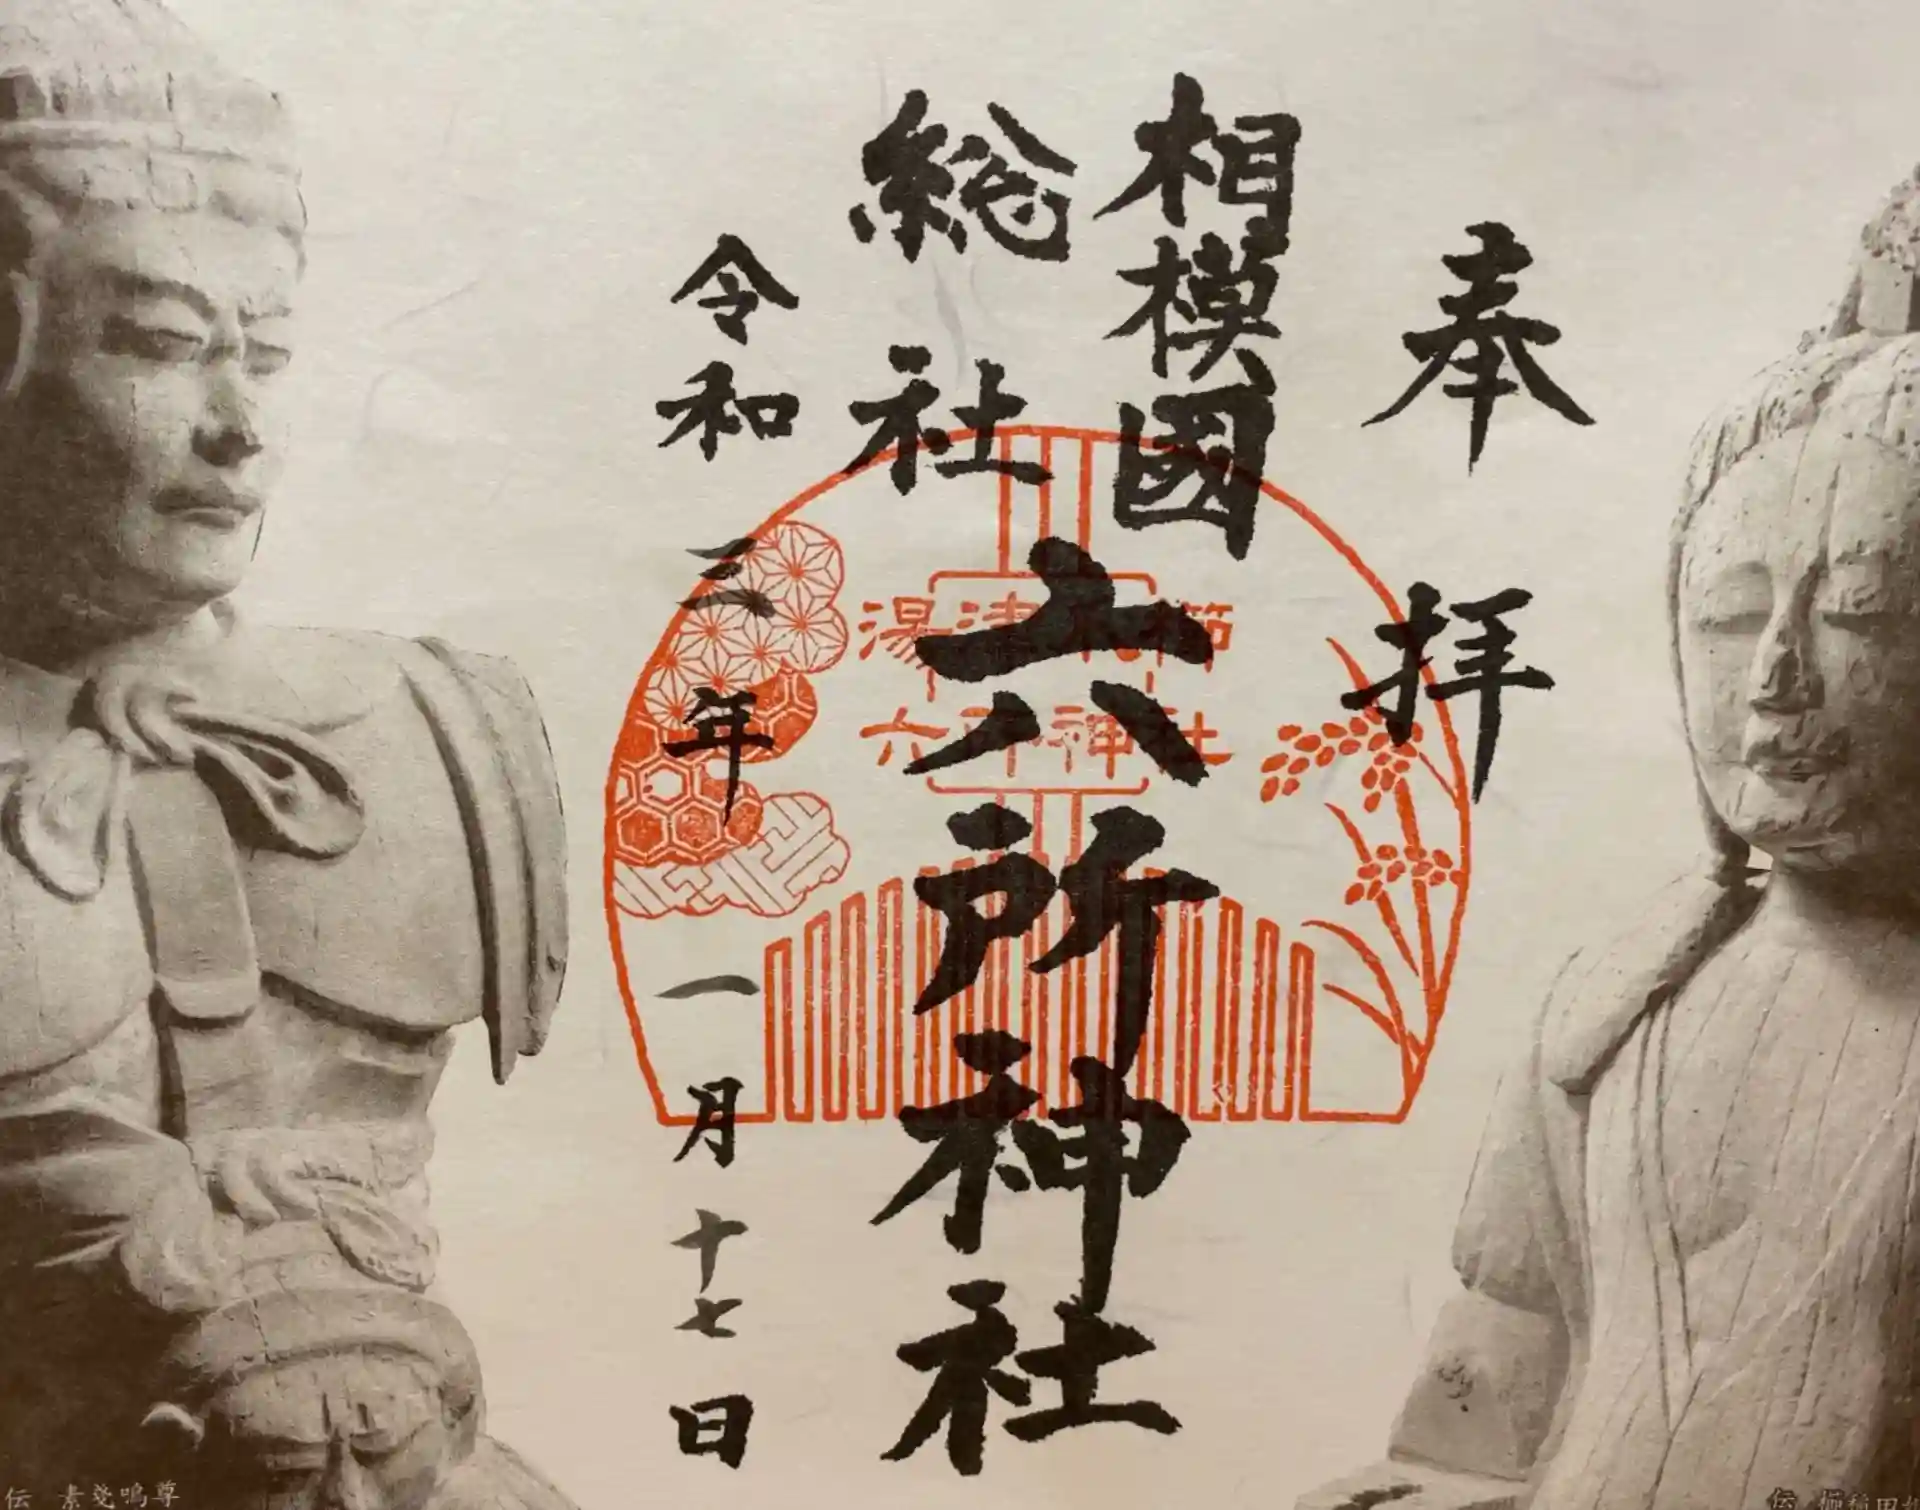 奉拝
相模國
総社
六所神社
令和三年一月十七日
湯津爪櫛
六所神社
伝 素戔嗚尊
伝 櫛稲田